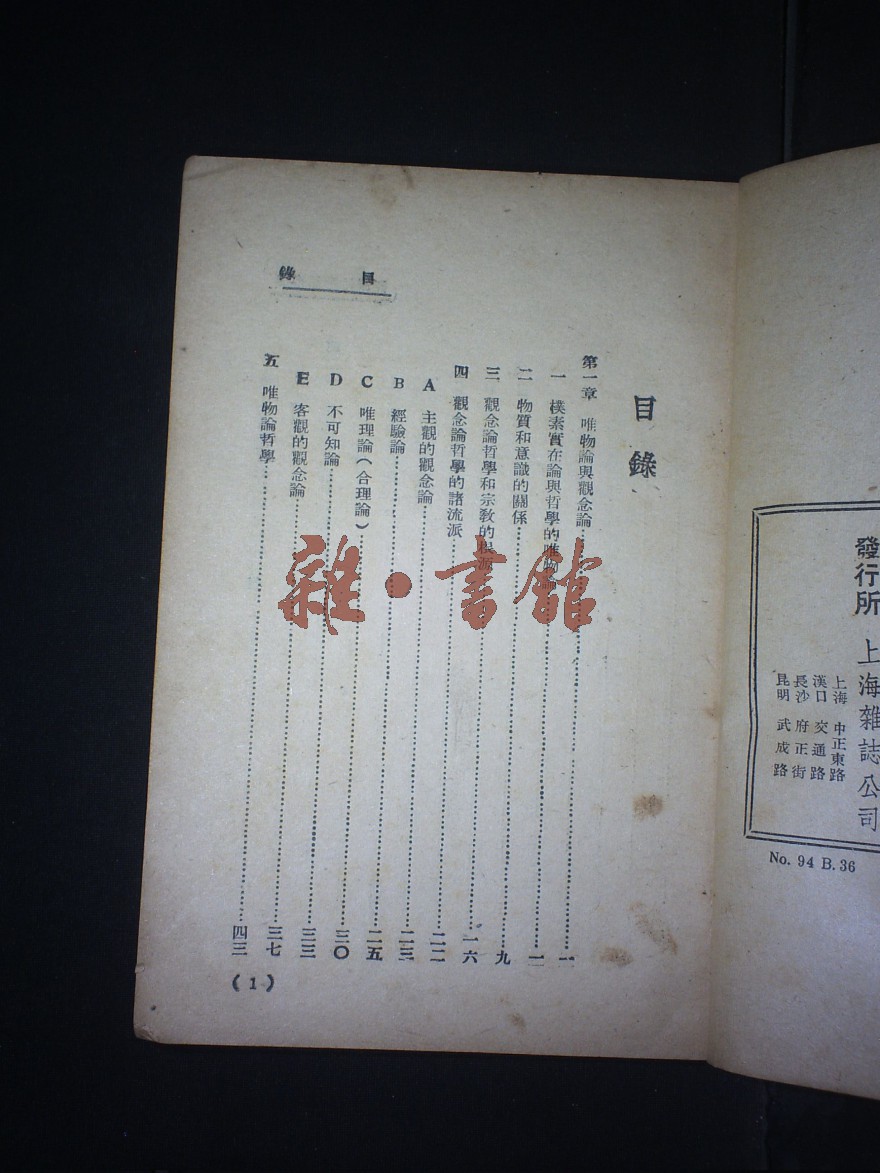 發行所 上海雜誌公司
上海 中正東路
漢口 交通路
長沙 府正街
昆明 武成路
No. 94 B.36
目錄
目錄
第一章 唯物論與觀念論……一
一 樸素實在論與哲學的唯物論……二
二 物質和意識的關係……九
三 觀念論哲學和宗教的根源……一六
四 觀念論哲學的諸流派……二二
A 主觀的觀念論……二三
B 經驗論……二五
C 唯理論(合理論)……三〇
D 不可知論……三三
E 客觀的觀念論……三七
五 唯物論哲學……四三
(1)
雜·書館